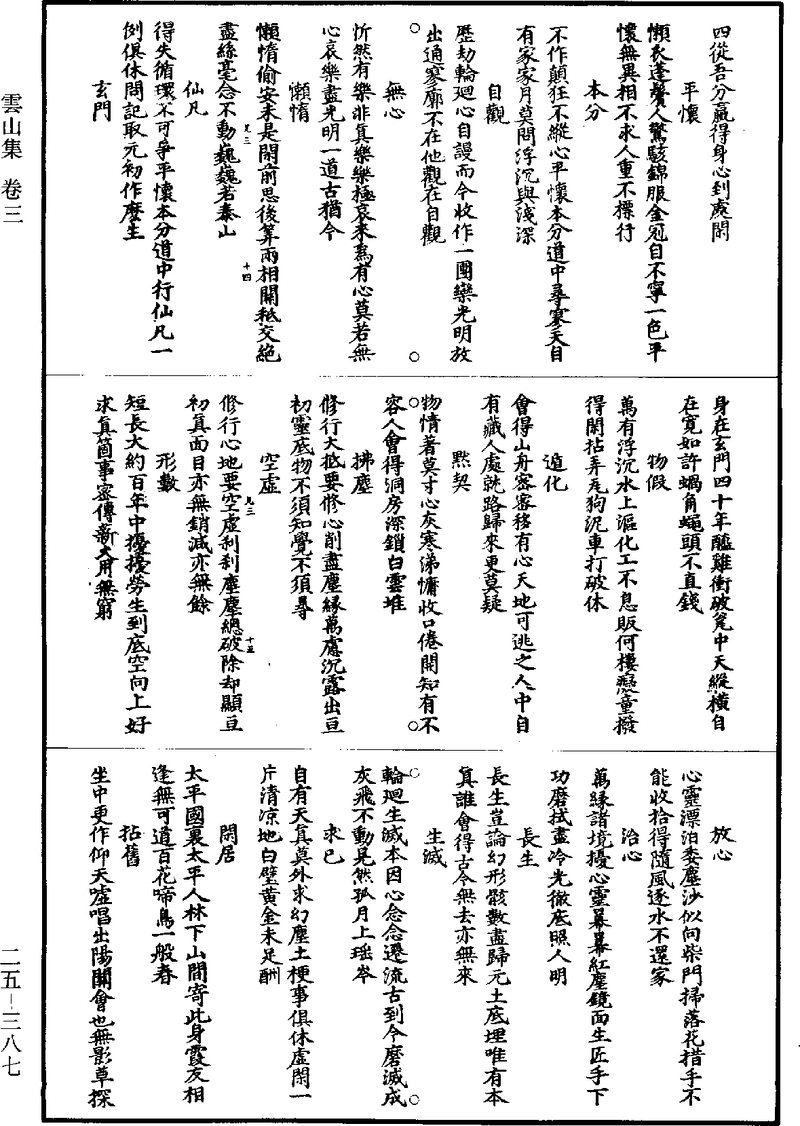 雲山集　卷三
四從吾分贏得身心到處閑
平懷
懶衣蓬鬢人驚駭錦服金冠自不寧一色平
懷無異相不求人重不摽行
本分
不作顛狂不縱心平懷本分道中尋寥天自
有家家月莫問浮沉與淺深
自觀
歷劫輪廻心自謾而今收作一團欒光明放
出通寥廓不在他觀在自觀
無心
忻然有樂非真樂樂極哀來爲有心莫若無
心哀樂盡光明一道古猶今
懶惰
懶惰偷安未是閑前思後算兩相關秪交絶
盡絲毫念不動巍巍若泰山
仙凡
得失循環不可爭平懷本分道中行仙凡一
例俱休問記取元初作麼生
玄門
身在玄門四十年醯雞衝破瓮中天縱橫自
在寬如許蝸角蠅頭不直錢
物假
萬有浮沉水上漚化工不息販何樓憨童撥
得閑拈弄瓦狗泥車打破休
遁化
會得山舟密密移有心天地可逃之人中自
有藏人處就路歸來更莫疑
黙契
物情著莫寸心灰寒涕慵收口倦開知有不
容人會得洞房深鎖白雲堆
拂塵
修行大抵要修心削盡塵緣萬慮沉露出亘
初靈底物不須知覺不須尋
空虛
修行心地要空虛利刹塵塵總破除却顯亘
初真面目亦無銷減亦無餘
形數
短長大約百年中擾擾勞生到底空向上好
求真箇事密傳新大用無窮
放心
心靈漂泊委塵沙似向柴門掃落花措手不
能收拾得隨風逐水不還家
治心
萬緣諸境擾心靈冪冪紅塵鏡面生匠手下
功磨拭盡冷光徹底照人明
長生
長生豈論幻形骸數盡歸元土底埋唯有本
真誰會得古今無去亦無來
生滅
輪廻生滅本因心念念遷流古到今磨滅成
灰飛不動晃然孤月上瑶岑
求已
自有天真莫外求幻塵土梗事俱休虛閑一
片清凉地白璧黄金未足酬
閑居
太平國裏太平人林下山間寄此身霞友相
逢無可道百花啼鳥一般春
拈舊
坐中更作仰天噓唱出陽關會也無影草探
二五–三八七